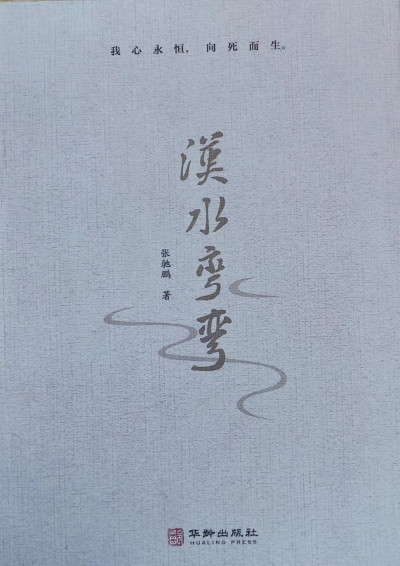 我心永恒，向死而生。
漢水弯弯
张驰鹏 著
华龄出版社
HUALING PRESS